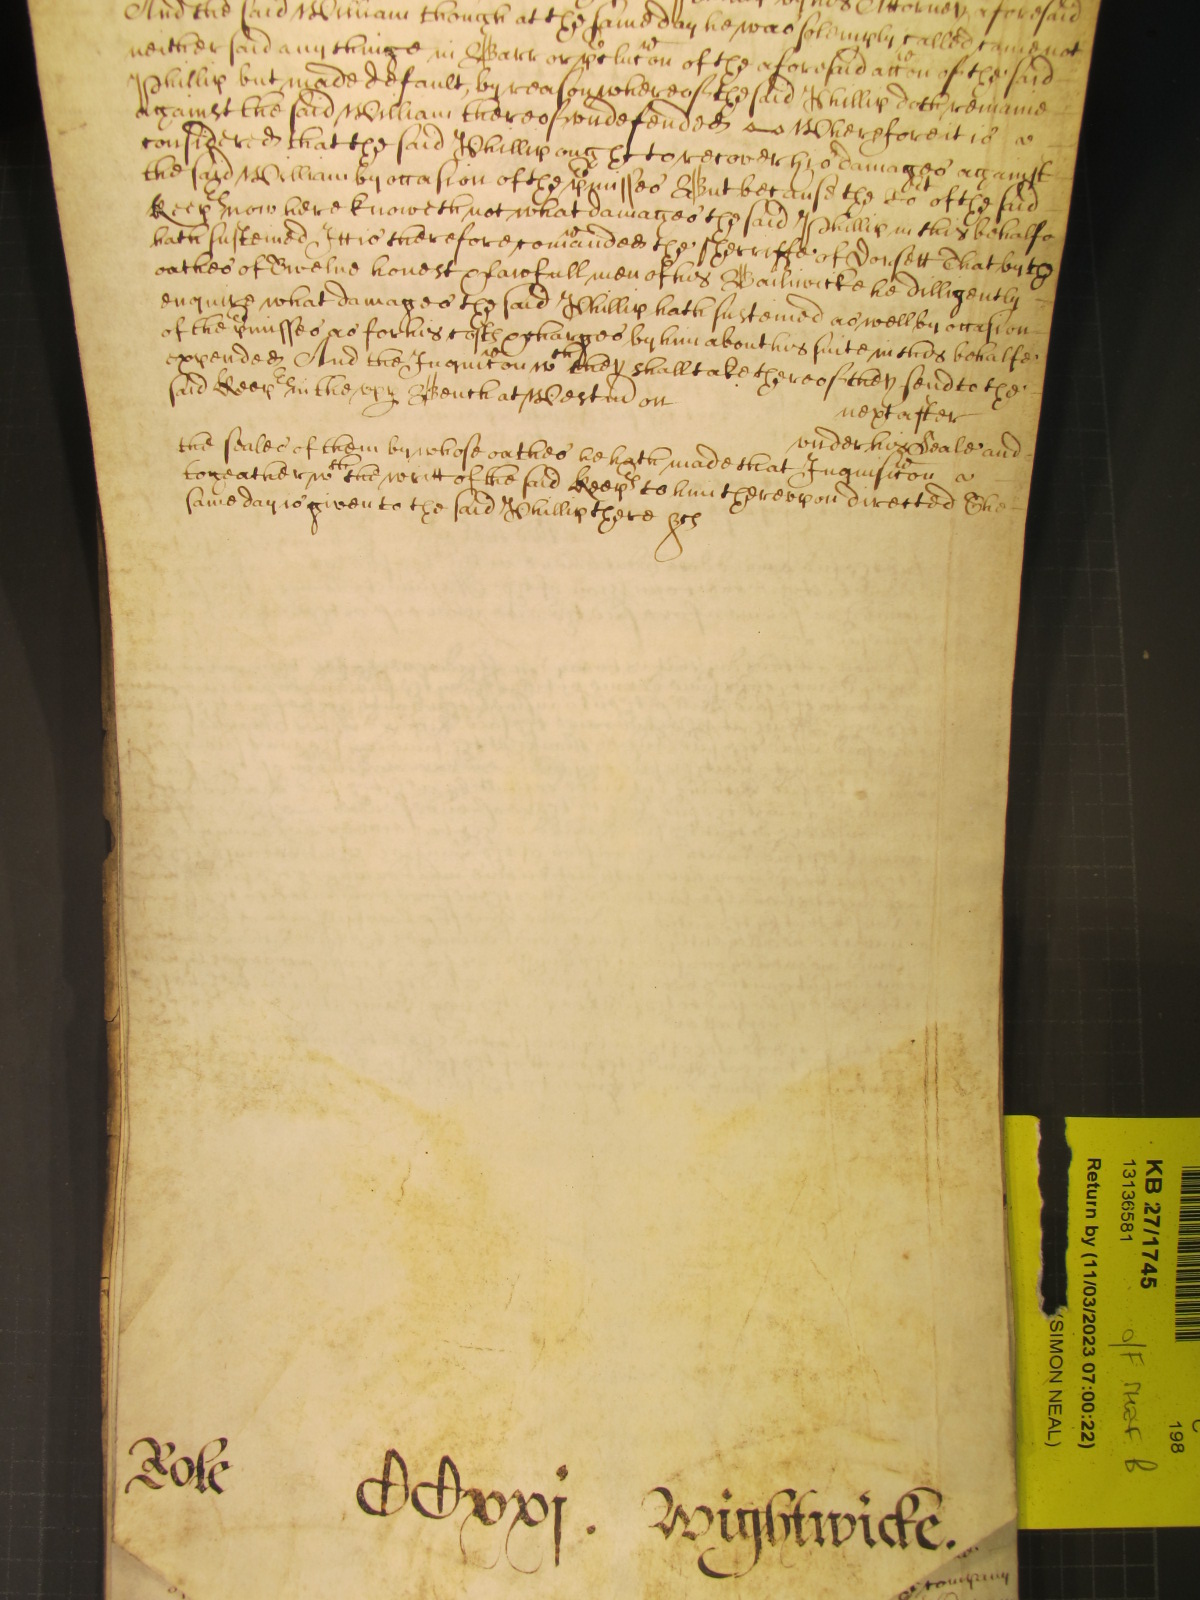 by his Attorney aforesaid
And the said William though at the same day he was solempnly called came not
neither said any thinge in Barr or p̱clucon of the aforesaid accon of the said
Phillip but made default, by reason whereof the said Phillip doth remaine
against the said William thereof undefended Wherefore it is
considered that the said Phillip ought to recover his damages against
the said William by occasion of the p̱misses But because the Cot of the said
Keeps now here knoweth not what damages the said Phillip in this behalfe
hath susteined Itt is therefore comanded the Sherriffe of Dorsett That by the
oathes of Twelve honest & lawfull men of his Bailiwicke he dilligently
enquire what damages the said Phillip hath susteined as well by occasion
of the p̱misses as for his costs & charges by him about his suite in this behalfe
expended And the Inquicon wch they shall take thereof they send to the
said Keeps in the upp Bench at Westm̄ on
next after
under his Seale and
the seales of them by whose oathes he hath made that Inquisicon
togeather wth the writt of the said Keeps to him thereupon directed The
same day is given to the said Phillip there &c
Role CCxxj. Wightwicke.
company
KB 27/1745
13136581
Return by (11/03/2023 07:00:22)
(SIMON NEAL)
198